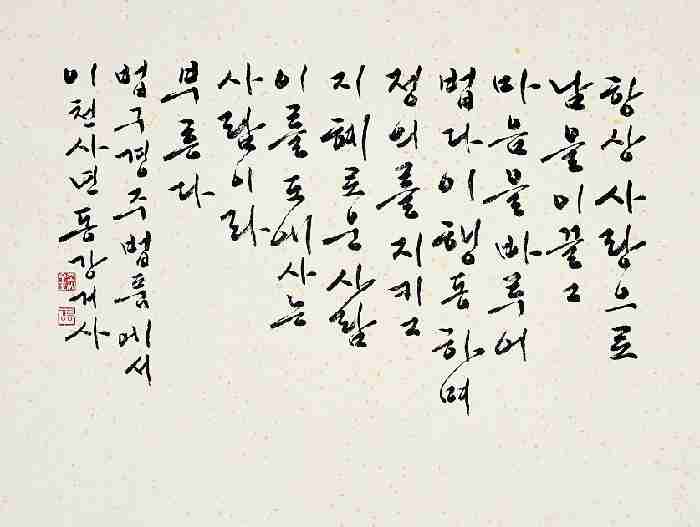 항상사랑으로
남을이끌고
마음을바루어
법다이행동하며
정의를지키고
지혜로운사람
이를도에사는
사람이라
부른다
법구경주법품에서
이천사년동강거사